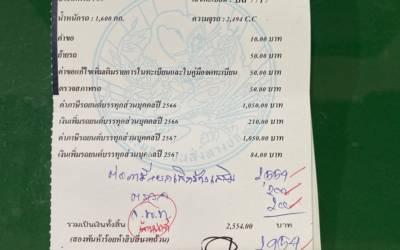 น้ำหนักรถ : 1,600 กก. ความจุรถ : 2,494 C.C
ค่าขอ 10.00 บาท
ย้ายรถ 50.00 บาท
ค่าขอแก้ไขเพิ่มเติมรายการในทะเบียนและในคู่มือจดทะเบียน 50.00 บาท
ตรวจสภาพรถ 50.00 บาท
ค่าภาษีรถยนต์บรรทุกส่วนบุคคลปี 2566 1,050.00 บาท
เงินเพิ่มรถยนต์บรรทุกส่วนบุคคลปี 2566 210.00 บาท
ค่าภาษีรถยนต์บรรทุกส่วนบุคคลปี 2567 1,050.00 บาท
เงินเพิ่มรถยนต์บรรทุกส่วนบุคคลปี 2567 84.00 บาท
2554
200
200
รวมเป็นเงินทั้งสิ้น 2,554.00 บาท
(สองพันห้าร้อยห้าสิบสี่บาทถ้วน)